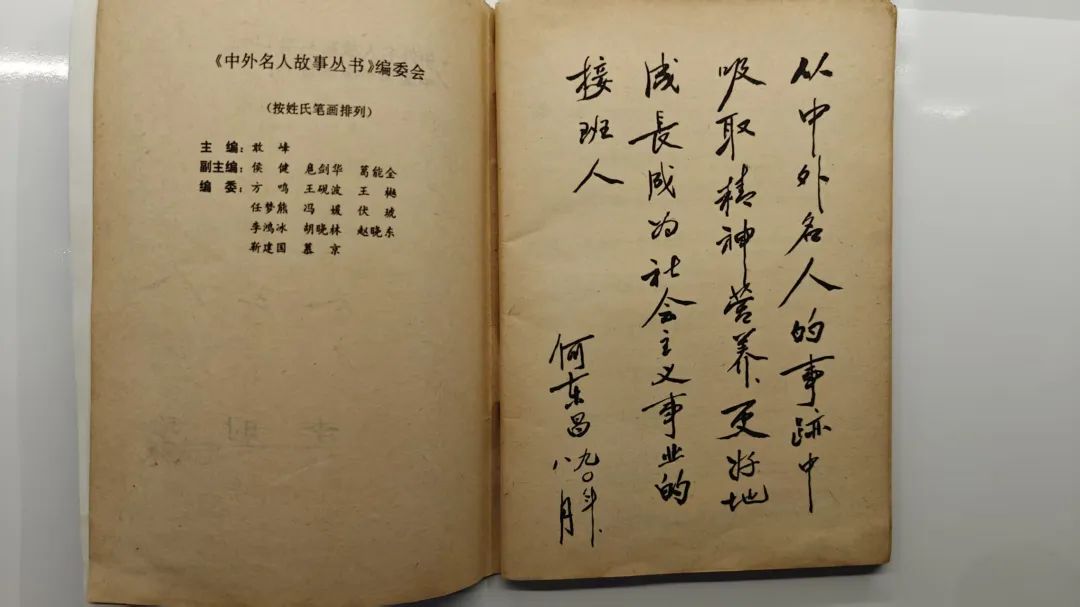 《中外名人故事丛书》编委会
（按姓氏笔画排列）
主 编：敢 峰
副主编：侯 健 扈剑华 葛能全
编 委：方 鸣 王砚波 王 樾
任梦熊 冯 媛 伏 琥
李鸿冰 胡晓林 赵晓东
靳建国 慕 京
从中外名人的事跡中
吸取精神营养、更好地
成長成为社会主义事业的
接班人
何东昌
九〇年、
八月